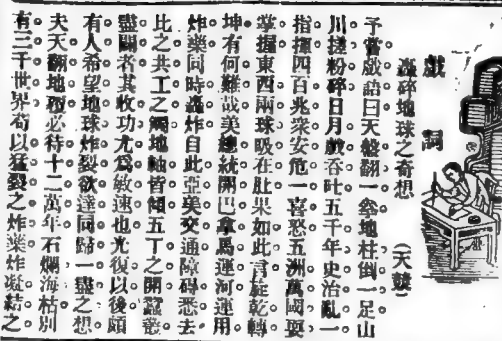 戲詞
轟碎地球之奇想 （天虛）
予嘗戲語曰天盤翻一拳地柱倒一足山
川搓粉碎日月戲吞吐五千年史治亂一
指揮四百兆衆安危一喜怒五洲萬國耍
掌握東西兩球吸在肚果如此言旋乾轉
坤有何難哉美總統開巴拿馬運河運用
炸藥同時轟炸自此亞美交通障碍悉去
比之共工之觸地軸皆傾五丁之開蠶叢
盡闢者其收功尤爲敏速也光復以後頗
有人希望地球炸裂欲達同歸一盡之想
夫天翻地覆必待十二萬年石爛海枯別
有三千世界苟以猛烈之炸藥炸凝結之